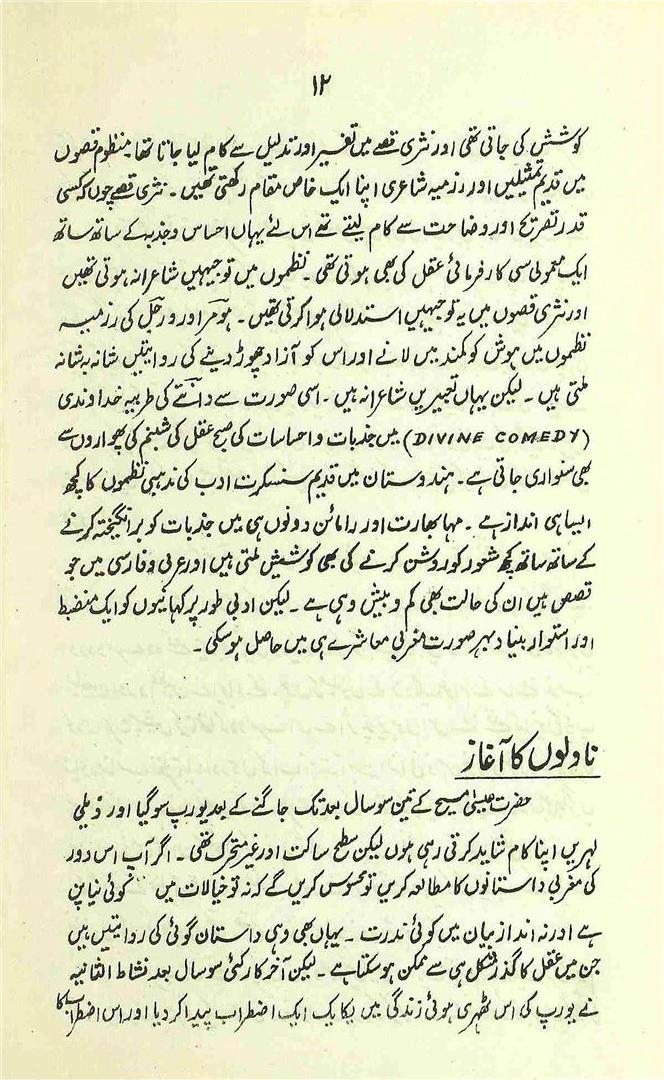 ۱۲
کوشش کی جاتی تھی اور نثری قصے میں تفسیر اور تدلیل سے کام لیا جاتا تھا۔ منظوم قصوں
میں قدیم تمثیلیں اور رزمیہ شاعری اپنا ایک خاص مقام رکھتی تھیں۔ نثری قصے چوں کہ کسی
قدر تصریح اور وضاحت سے کام لیتے تھے اس لئے یہاں احساس و جذبہ کے ساتھ ساتھ
ایک معمولی سی کارفرمائی عقل کی بھی ہوتی تھی۔ نظموں میں توجیہیں شاعرانہ ہوتی تھیں
اور نثری قصوں میں یہ توجیہیں استدلالی ہوا کرتی تھیں۔ ہومر اور ورجل کی رزمیہ
نظموں میں ہوش کو کمند میں لانے اور اس کو آزاد چھوڑ دینے کی روایتیں شانہ بہ شانہ
ملتی ہیں۔ لیکن یہاں تعبیریں شاعرانہ ہیں۔ اسی صورت سے دانتے کی طربیہ خداوندی
(DIVINE COMEDY) میں جذبات و احساسات کی صبح عقل کی شبنم کی پھواروں سے
بھی سنواری جاتی ہے۔ ہندوستان میں قدیم سنسکرت ادب کی مذہبی نظموں کا کچھ
ایسا ہی انداز ہے۔ مہابھارت اور رامائن دونوں ہی میں جذبات کو برانگیختہ کرنے
کے ساتھ ساتھ کچھ شعور کو روشن کرنے کی بھی کوشیش ملتی ہیں اور عربی و فارسی میں جو
قصص ہیں ان کی حالت بھی کم و بیش وہی ہے۔ لیکن ادبی طور پر کہانیوں کو ایک منضبط
اور استوار بنیاد بہر صورت مغربی معاشرے ہی میں حاصل ہو سکی۔
ناولوں کا آغاز
حضرت عیسیٰ مسیح کے تین سو سال بعد تک جاگنے کے بعد یورپ سو گیا اور ذیلی
لہریں اپنا کام شاید کرتی رہی ہوں لیکن سطح ساکت اور غیر متحرک تھی۔ اگر آپ اس دور
کی مغربی داستانوں کا مطالعہ کریں تو محسوس کریں گے کہ نہ تو خیالات میں کوئی نیا پن
ہے اور نہ انداز بیان میں کوئی ندرت۔ یہاں بھی وہی داستان گوئی کی روایتیں ہیں
جن میں عقل کا گذر مشکل ہی سے ممکن ہو سکتا ہے۔ لیکن آخر کار کئی سو سال بعد نشاط الثانیہ
نے یورپ کی اس ٹھہری ہوئی زندگی میں یکایک ایک اضطراب پیدا کر دیا اور اس اضطراب کا